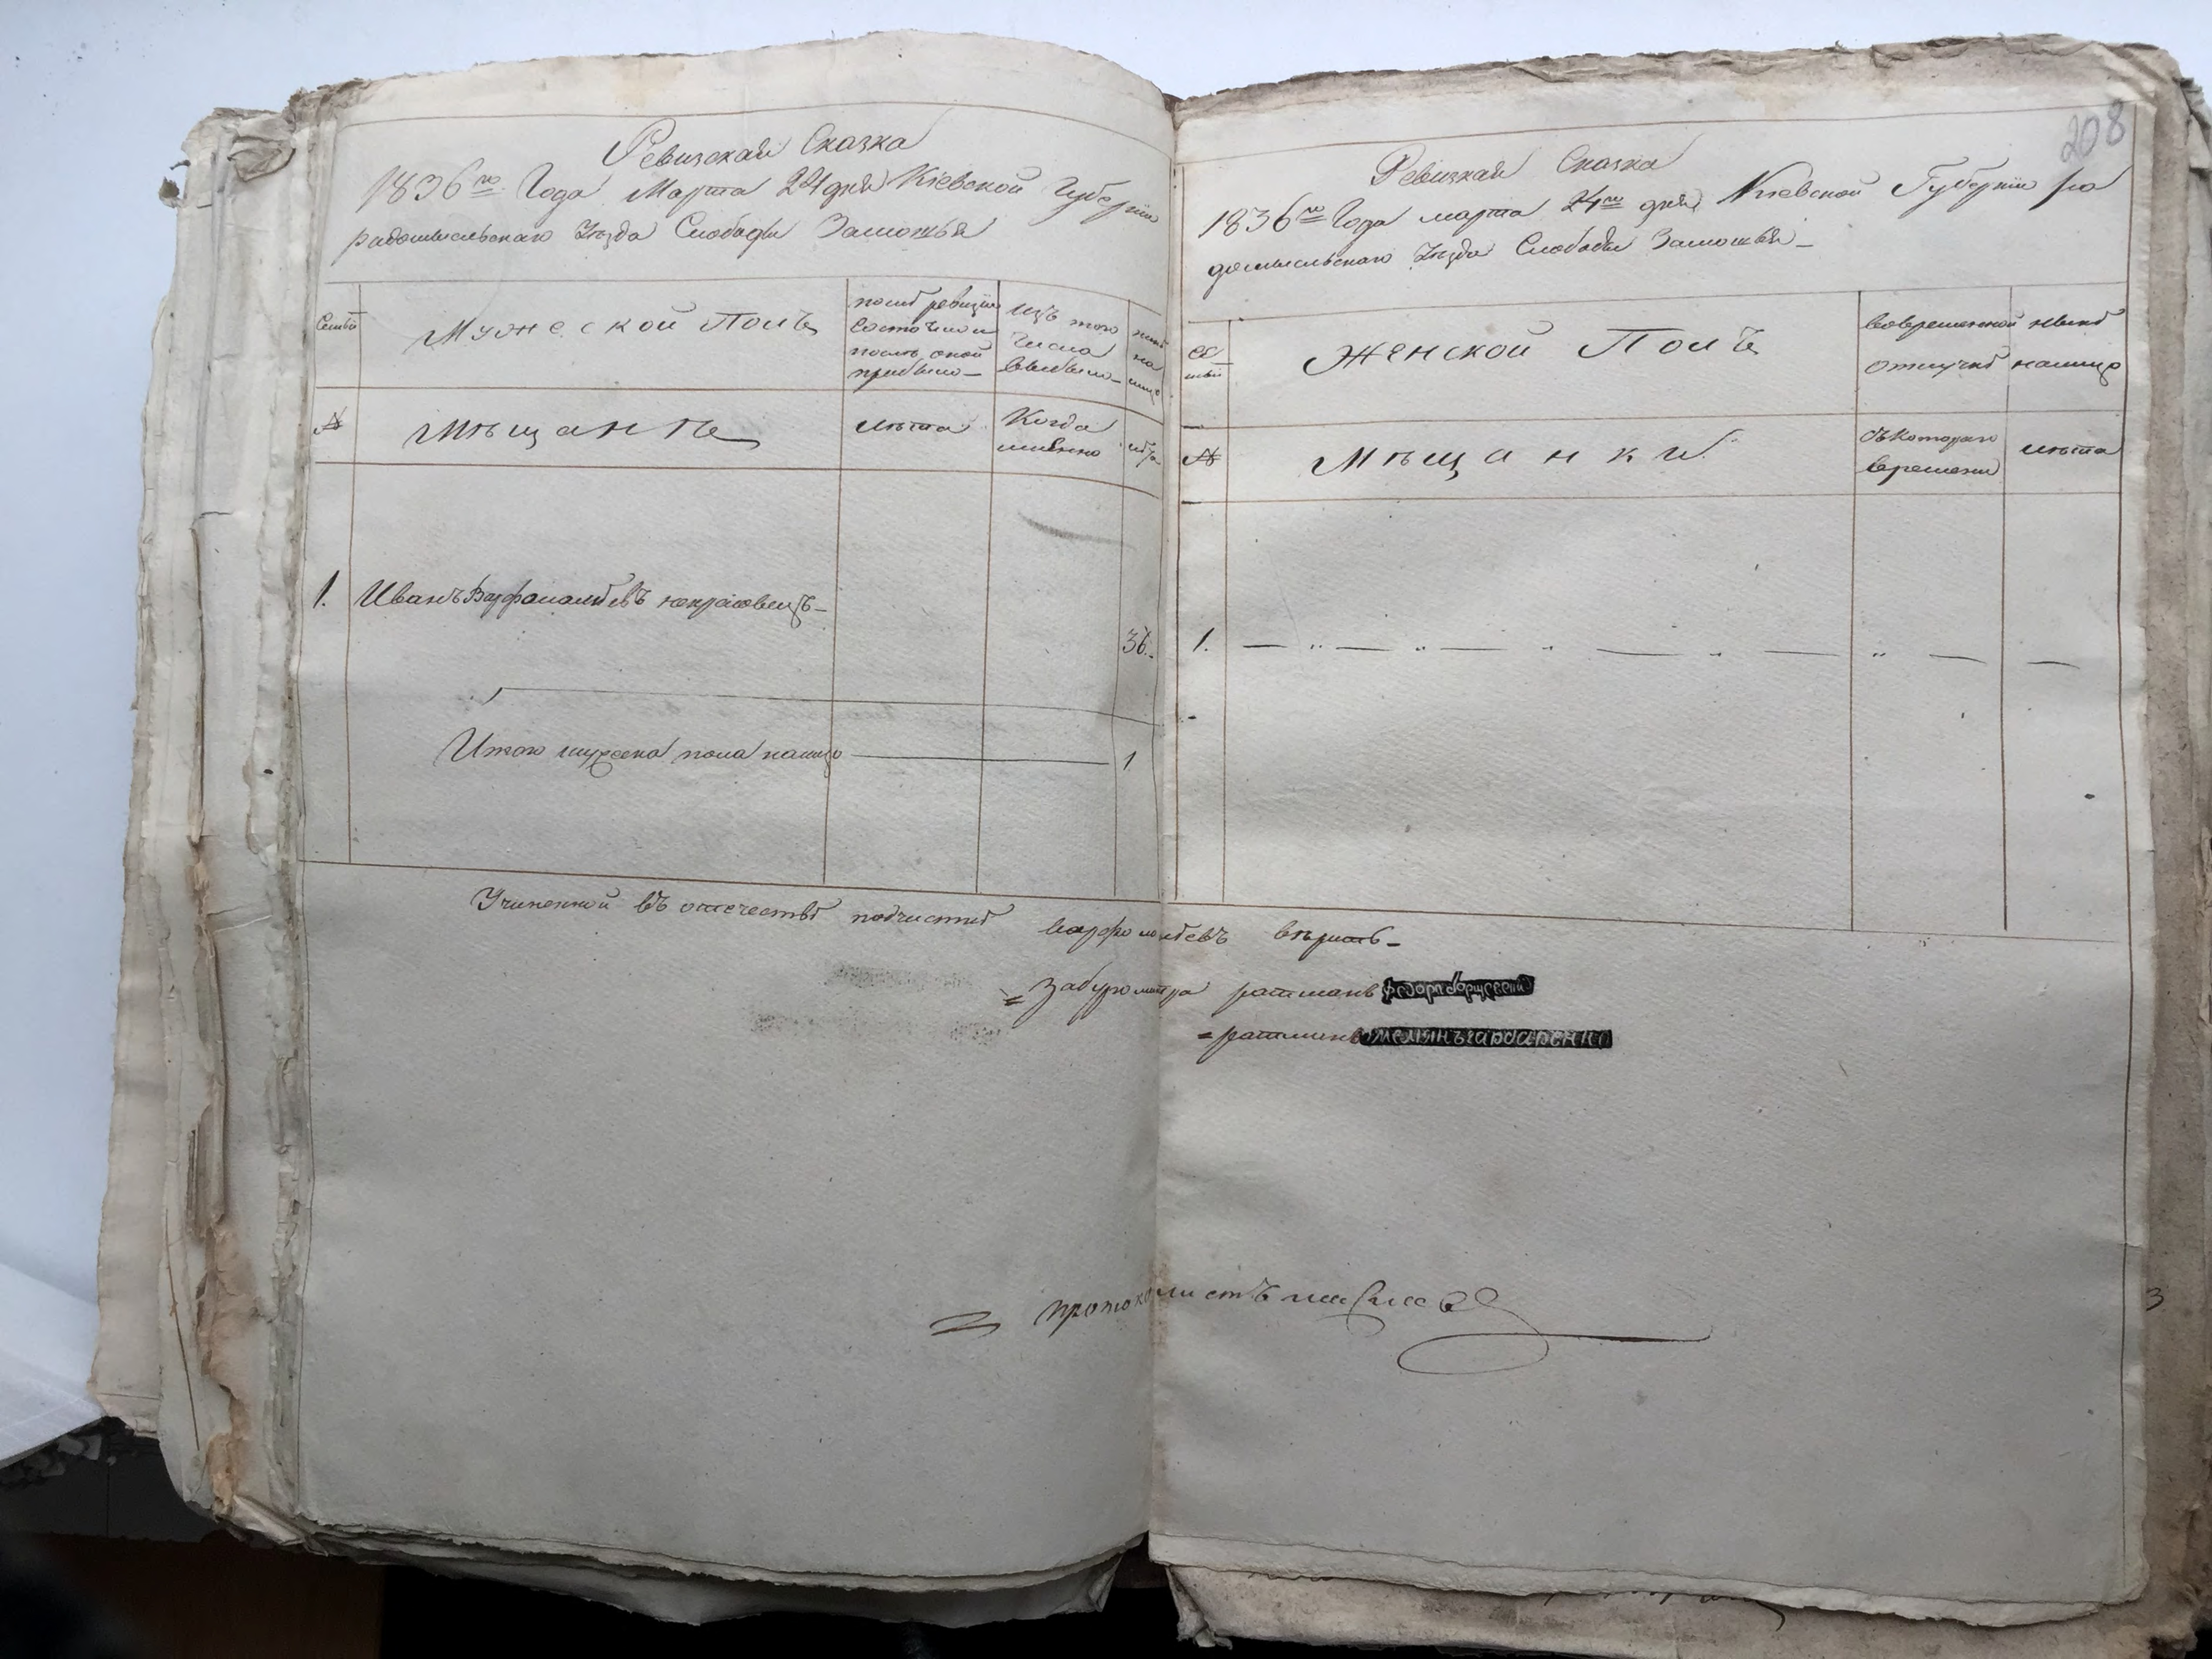 Ревизская Сказка
1836го Года Марта 24 дня Кіевской Губерніи
радомысльскаго Уѣзда Слободы Замошья
Семьи
Мужеской Полъ
послѣ ревизіи
состояло и
послѣ оной
прибыло
изъ того
числа
выбыло
нынѣ
на
лицо
№
Мѣщане
лѣта
Когда
именно
лѣта
1. Иванъ Варфоломѣевъ некрасовецъ
36.
Итого мужеска пола налицо 1
208
Ревизкая Сказка
1836го Года марта 24го дня Кіевской Губерніи ра
домысльскаго Уѣзда Слободы Замошья
Се
мьи
Женской Полъ
вовременной
отлучкѣ
нынѣ
налицо
№
Мѣщанки
съ котораго
времени
лѣта
1.
Учиненной въ отечествѣ подчисткѣ варфоломѣевъ вѣрить
= За бургомистра ратманъ
= ратманъ
протоколистъ
3